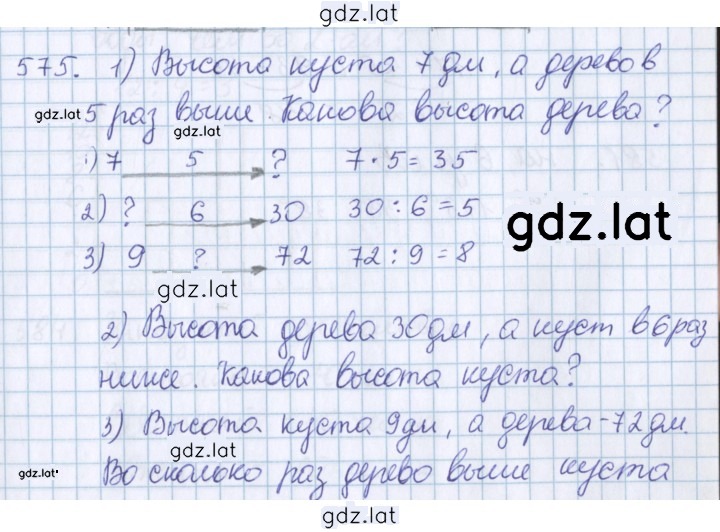 gdz.lat
575. 1) Высота куста 7 дм, а дерево в
gdz.lat 5 раз выше. Какова высота дерева?
gdz.lat
1) 7 5 ? 7 · 5 = 35
2) ? 6 30 30 : 6 = 5
gdz.lat
3) 9 ? 72 72 : 9 = 8
gdz.lat
2) Высота дерева 30 дм, а куст в 6 раз
ниже. Какова высота куста?
3) Высота куста 9 дм, а дерева - 72 дм.
gdz.lat
gdz.lat Во сколько раз дерево выше куста
gdz.lat